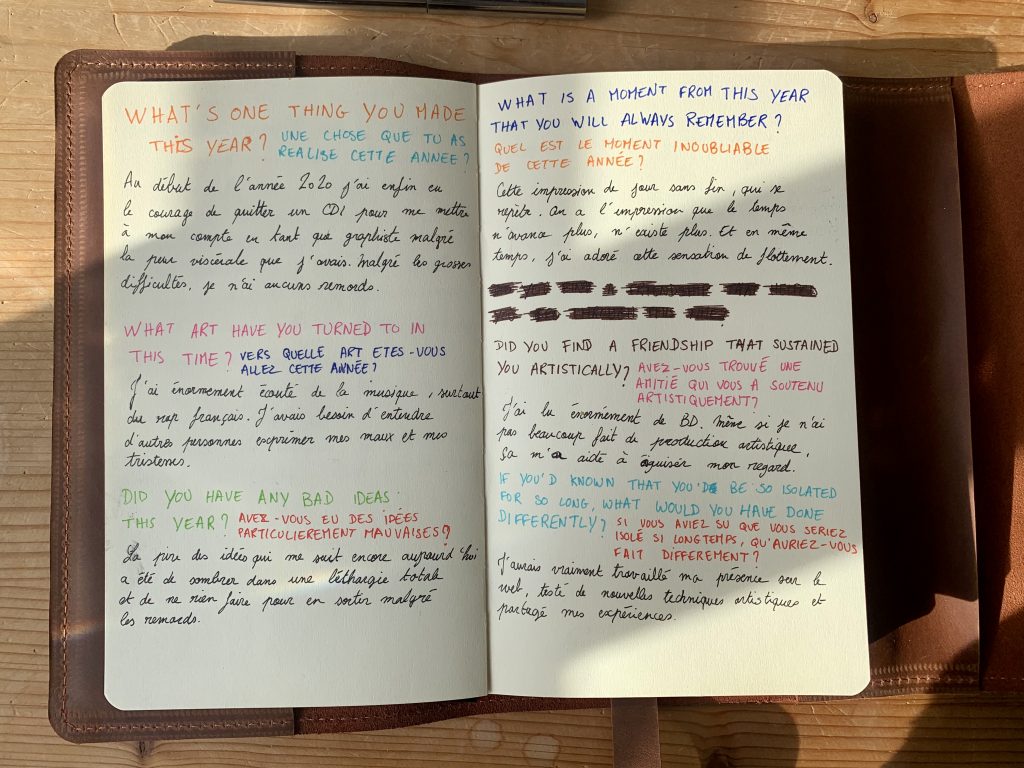 WHAT'S ONE THING YOU MADE
THIS YEAR? UNE CHOSE QUE TU AS
REALISE CETTE ANNEE?
Au début de l'année 2020 j'ai enfin eu
le courage de quitter un CDI pour me mettre
à mon compte en tant que graphiste malgré
la peur viscérale que j'avais. Malgré les grosses
difficultés, je n'ai aucuns remords.
WHAT ART HAVE YOU TURNED TO IN
THIS TIME? VERS QUELLE ART ETES-VOUS
ALLEZ CETTE ANNÉE?
J'ai énormement écouté de la musique, surtout
du rap français. J'avais besoin d'entendre
d'autres personnes exprimer mes maux et mes
tristesses.
DID YOU HAVE ANY BAD IDEAS
THIS YEAR? AVEZ-VOUS EU DES IDÉES
PARTICULIEREMENT MAUVAISES?
La pire des idées qui me suit encore aujourd'hui
a été de sombrer dans une léthargie totale
et de ne rien faire pour en sortir malgré
les remords.
WHAT IS A MOMENT FROM THIS YEAR
THAT YOU WILL ALWAYS REMEMBER?
QUEL EST LE MOMENT INOUBLIABLE
DE CETTE ANNÉE?
Cette impression de jour sans fin, qui se
répète. On a l'impression que le temps
n'avance plus, n'existe plus. Et en même
temps, j'ai adoré cette sensation de flottement.
DID YOU FIND A FRIENDSHIP THAT SUSTAINED
YOU ARTISTICALLY? AVEZ-VOUS TROUVÉ UNE
AMITIÉ QUI VOUS A SOUTENU
ARTISTIQUEMENT?
J'ai lu énormément de BD. Même si je n'ai
pas beaucoup fait de production artistique,
ça m'a aidé à aiguiser mon regard.
IF YOU'D KNOWN THAT YOU'D BE SO ISOLATED
FOR SO LONG, WHAT WOULD YOU HAVE DONE
DIFFERENTLY? SI VOUS AVIEZ SU QUE VOUS SERIEZ
ISOLÉ SI LONGTEMPS, QU'AURIEZ-VOUS
FAIT DIFFEREMENT?
J'aurais vraiment travaillé ma présence sur le
web, testé de nouvelles techniques artistiques et
partagé mes expériences.